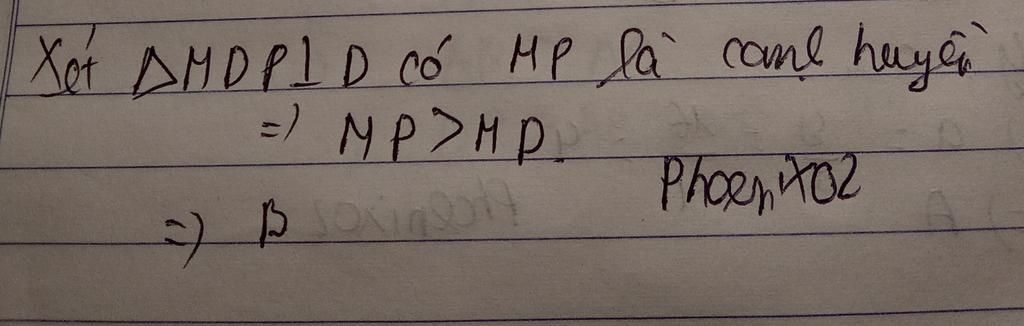 Xét ΔMDP⊥D có MP là cạnh huyền
=) MP>MD.
Phoenix02
=) B